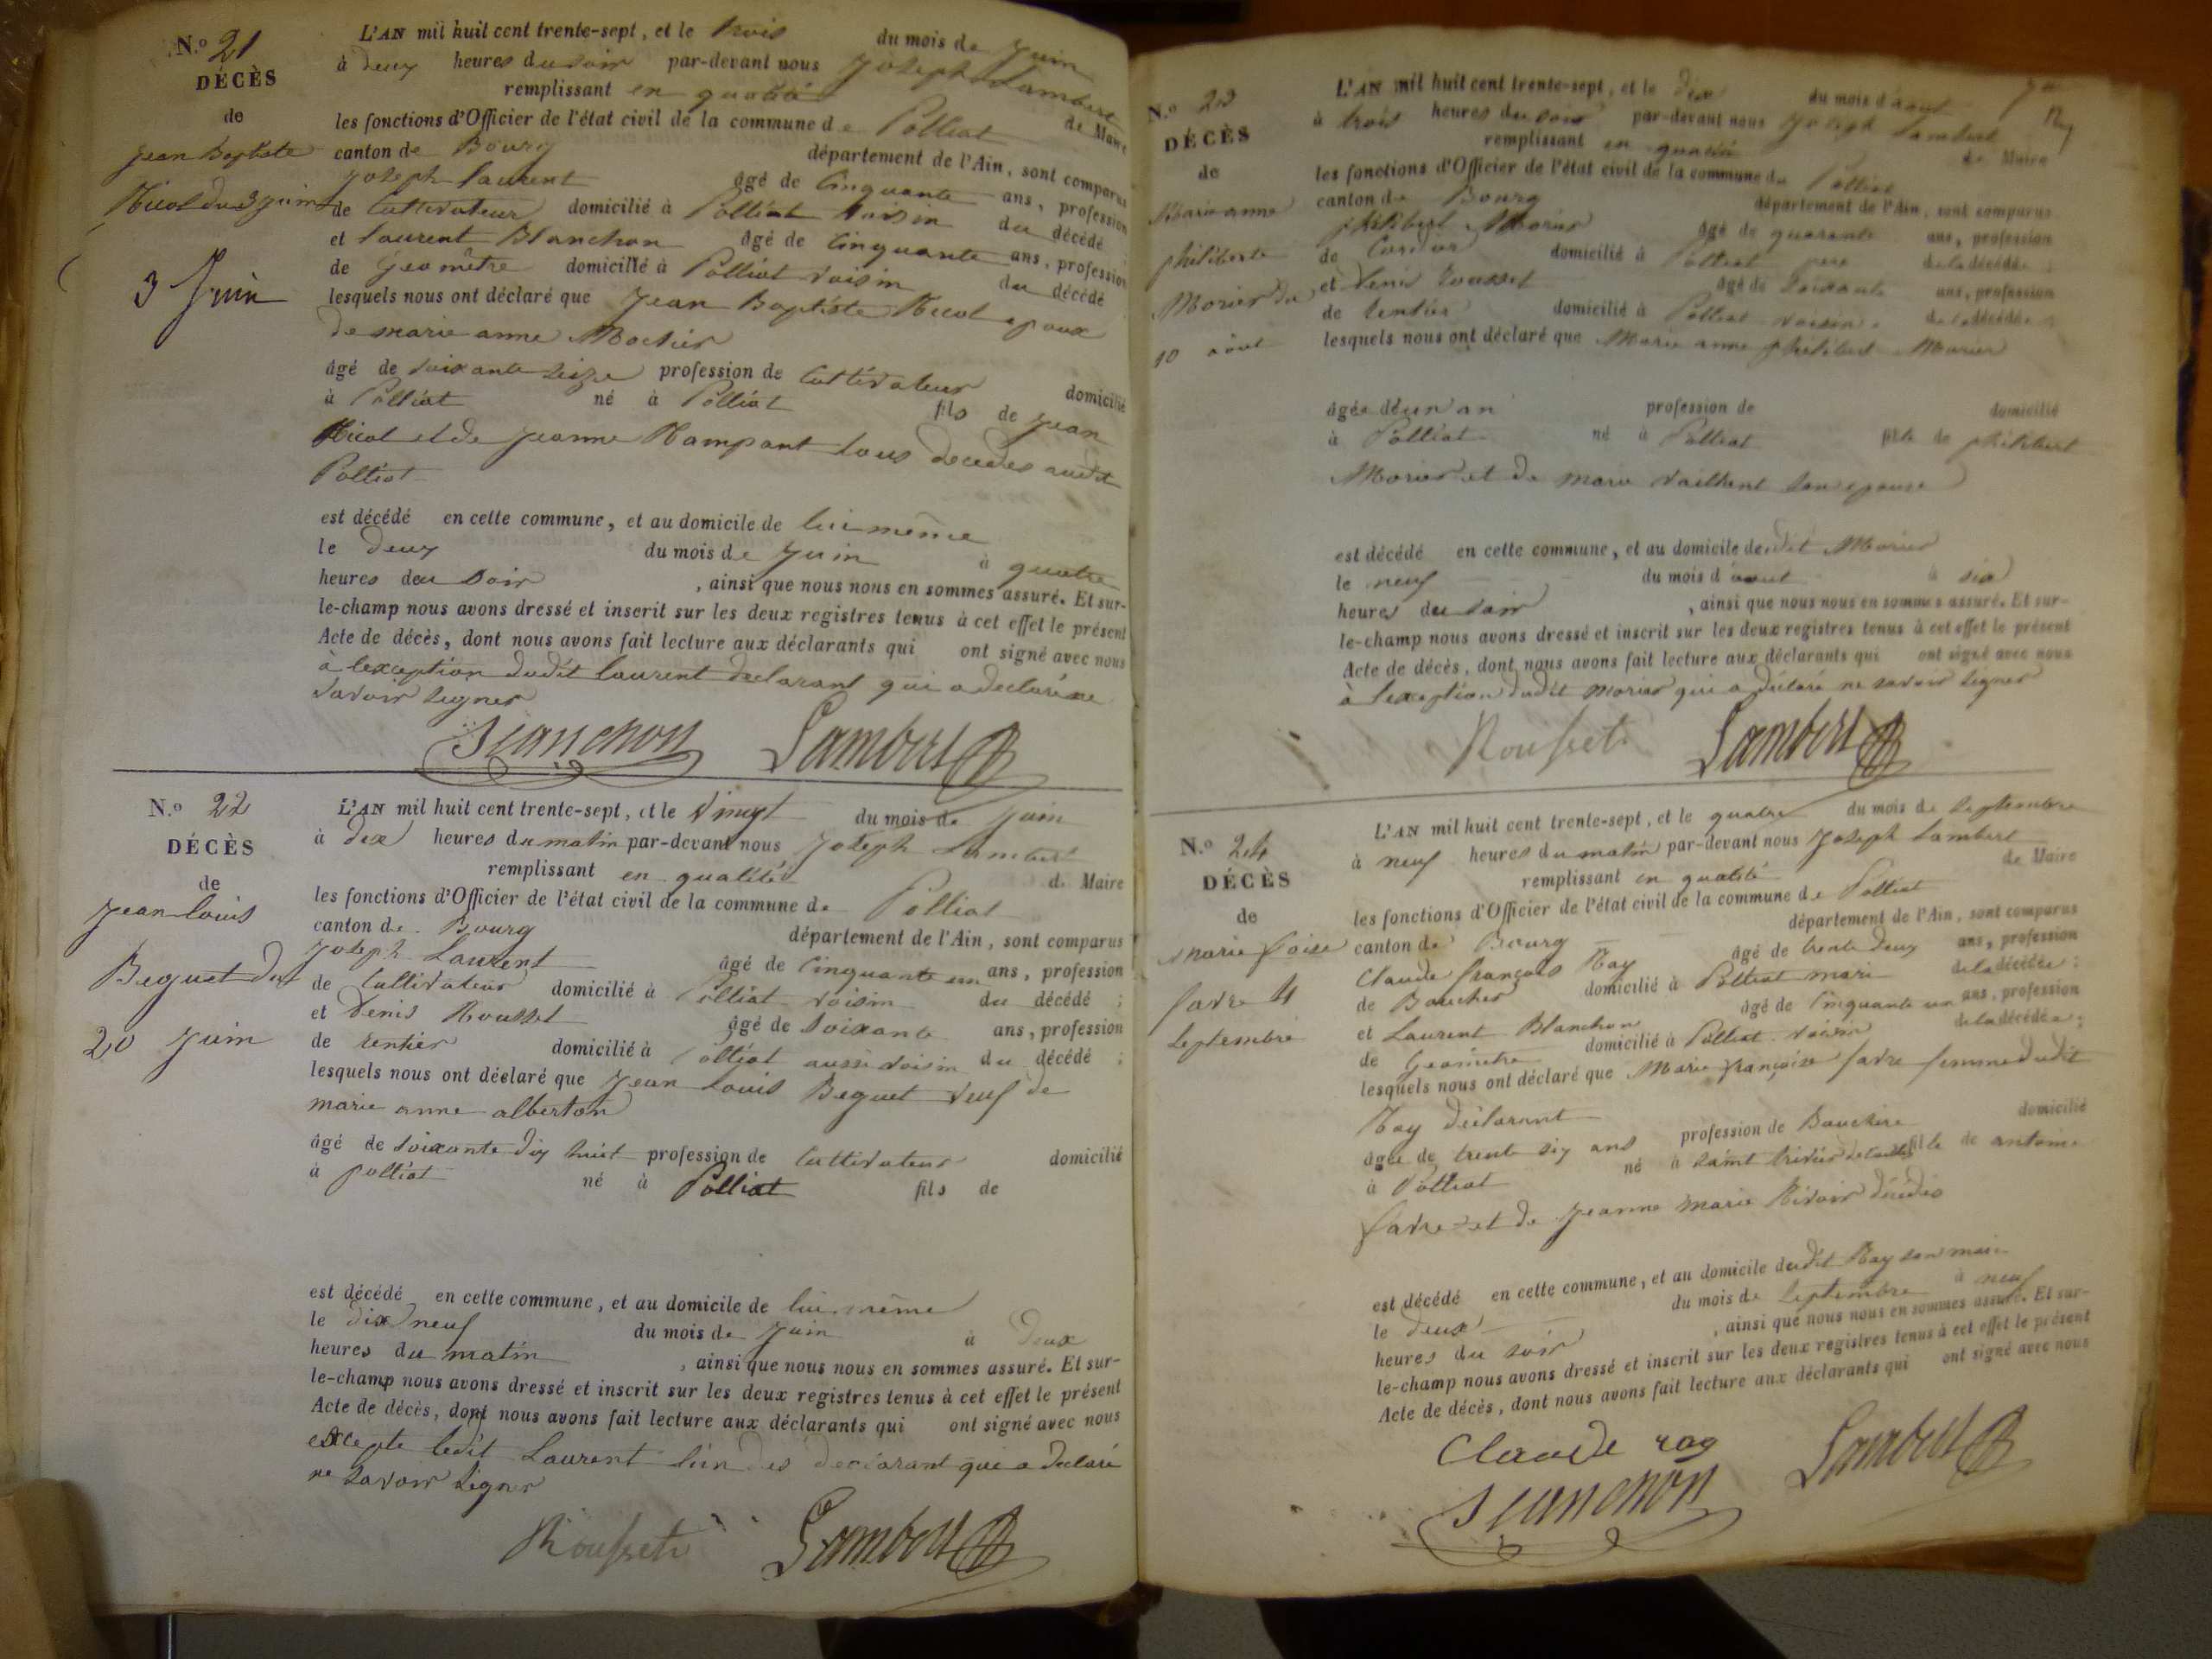 N.o 21
DÉCÈS
de
Jean Baptiste
Nicol du 3 juin
3 Juin
L'AN mil huit cent trente-sept, et le trois du mois de Juin
à deux heures du soir par-devant nous Joseph Lambert
remplissant en qualité de Maire
les fonctions d'Officier de l'état civil de la commune de Polliat
canton de Bourg département de l'Ain, sont comparus
Joseph Laurent âgé de Cinquante ans, profession
de Cultivateur domicilié à Polliat voisin du décédé
et Laurent Blanchon âgé de Cinquante ans, profession
de Géomètre domicilié à Polliat voisin du décédé
lesquels nous ont déclaré que Jean Baptiste Nicol epoux
de marie anne Mochier
âgé de soixante seize profession de Cultivateur domicilié
à Polliat né à Polliat fils de Jean
Nicol et de Jeanne Rampant tous decedes audit
Polliat
est décédé en cette commune, et au domicile de lui même
le deux du mois de Juin à quatre
heures du soir, ainsi que nous nous en sommes assuré. Et sur-
le-champ nous avons dressé et inscrit sur les deux registres tenus à cet effet le présent
Acte de décès, dont nous avons fait lecture aux déclarants qui ont signé avec nous
à lexception dudit Laurent declarant qui a declaré ne
savoir signer
Blanchon Lambert
N.o 22
DÉCÈS
de
Jean Louis
Beguet du
20 juin
L'AN mil huit cent trente-sept, et le Vingt du mois de Juin
à dix heures du matin par-devant nous Joseph Lambert
remplissant en qualité de Maire
les fonctions d'Officier de l'état civil de la commune de Polliat
canton de Bourg département de l'Ain, sont comparus
Joseph Laurent âgé de Cinquante un ans, profession
de Cultivateur domicilié à Polliat voisin du décédé ;
et Denis Rousset âgé de Soixante ans, profession
de rentier domicilié à Polliat aussi voisin du décédé ;
lesquels nous ont déclaré que Jean Louis Beguet veuf de
marie anne alberton
âgé de soixante dix huit profession de Cultivateur domicilié
à polliat né à Polliat fils de
est décédé en cette commune, et au domicile de lui même
le dix neuf du mois de Juin à Deux
heures du matin, ainsi que nous nous en sommes assuré. Et sur-
le-champ nous avons dressé et inscrit sur les deux registres tenus à cet effet le présent
Acte de décès, dont nous avons fait lecture aux déclarants qui ont signé avec nous
excepte ledit Laurent l'un des declarant qui a declaré
ne savoir signer
Rousset Lambert
N.o 23
DÉCÈS
de
Marie anne
philiberte
Morier du
10 août
L'AN mil huit cent trente-sept, et le dix du mois d'aout
à trois heures du soir par-devant nous Joseph Lambert
remplissant en qualité de Maire
les fonctions d'Officier de l'état civil de la commune de Polliat
canton de Bourg département de l'Ain, sont comparus
philibert Morier âgé de quarante ans, profession
de domicilié à Polliat pere de la décédée ;
et Denis Rousset âgé de Soixante ans, profession
de rentier domicilié à Polliat voisin de la décédée ;
lesquels nous ont déclaré que Marie anne philibert Morier
âgée d'un an profession de domicilié
à Polliat né à Polliat fille de philibert
Morier et de marie vaillent son epouse
est décédé en cette commune, et au domicile dudit Morier
le neuf du mois d'aout à six
heures du soir, ainsi que nous nous en sommes assuré. Et sur-
le-champ nous avons dressé et inscrit sur les deux registres tenus à cet effet le présent
Acte de décès, dont nous avons fait lecture aux déclarants qui ont signé avec nous
à lexception dudit morier qui a déclaré ne savoir signer
Rousset Lambert
N.o 24
DÉCÈS
de
Marie foise
favre 4
Septembre
L'AN mil huit cent trente-sept, et le quatre du mois de Septembre
à neuf heures du matin par-devant nous Joseph Lambert
remplissant en qualité de Maire
les fonctions d'Officier de l'état civil de la commune de Polliat
canton de Bourg département de l'Ain, sont comparus
Claude françois Ray âgé de trente deux ans, profession
de Boucher domicilié à Polliat mari de la décédée ;
et Laurent Blanchon âgé de Cinquante un ans, profession
de Géomètre domicilié à Polliat voisin de la décédée ;
lesquels nous ont déclaré que Marie françoise favre femme dudit
Ray déclarant
âgée de trente six ans profession de Bouchere domicilié
à Polliat né à saint trivier de fille de antoine
favre et de Jeanne Marie Rivoir décédés
est décédé en cette commune, et au domicile dudit Ray son mari
le deux du mois de Septembre à neuf
heures du soir, ainsi que nous nous en sommes assuré. Et sur-
le-champ nous avons dressé et inscrit sur les deux registres tenus à cet effet le présent
Acte de décès, dont nous avons fait lecture aux déclarants qui ont signé avec nous
Claude ray Lambert
Blanchon